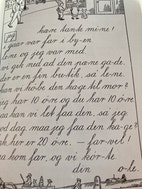 kære tante mine!
i gaar var far i by-en
ine og jeg var med.
vi med ud den pæne gade.
dær er en fin bu-tik, så le-ne.
kan vi kø-be den ka-ge til mor?
jeg har 10 ø-re og du har 10 ø-re
kan vi faa den, så jeg
dag, maa jeg faa den ka-ge?
ja. her er 20 ø-re. – far-vel!
kom far, og vi kør-te
den o-le.